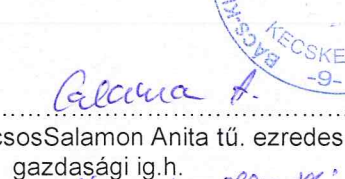 BÁCS-KI
KECSKE
-9-
csosSalamon Anita tű. ezredes
gazdasági ig.h.